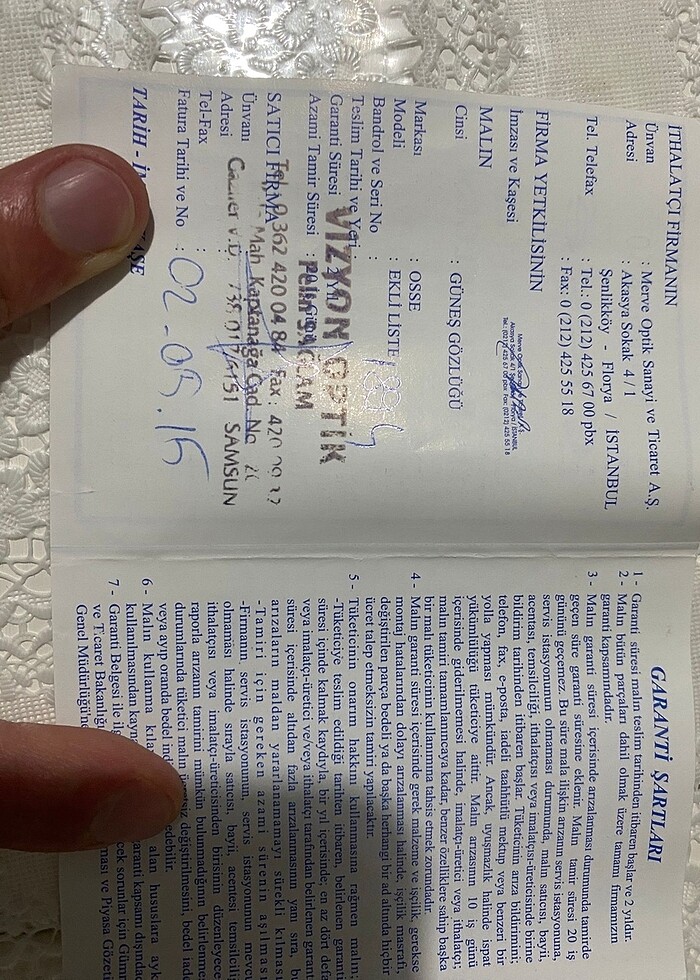 İTHALATÇI FİRMANIN
Ünvan : Merve Optik Sanayi ve Ticaret A.Ş.
Adresi : Akasya Sokak 4 / 1
Şenlikköy - Florya / İSTANBUL
Tel. Telefax : Tel.: 0 (212) 425 67 00 pbx
: Fax: 0 (212) 425 55 18
FİRMA YETKİLİSİNİN
İmzası ve Kaşesi
MALIN
Cinsi : GÜNEŞ GÖZLÜĞÜ
Markası : OSSE
Modeli : EKLİ LİSTE
Bandrol ve Seri No :
Teslim Tarihi ve Yeri
Garanti Süresi
Azami Tamir Süresi :
VİZYON OPTİK
Pelin SAĞLAM
SATICI FİRMA
Tel: 0 362 420 04 84 Fax: 420
Ünvanı
Mah. Kaptanağa Cad. No
Adresi :
V.D. SAMSUN
Tel-Fax :
Fatura Tarihi ve No : 02-05.15
TARİH - KAŞE
GARANTİ ŞARTLARI
1 - Garanti süresi malın teslim tarihinden itibaren başlar ve 2 yıldır.
2 - Malın bütün parçaları dahil olmak üzere tamamı firmamızın
garanti kapsamındadır.
3 - Malın garanti süresi içerisinde arızalanması durumunda tamirde
geçen süre garanti süresine eklenir. Malın tamir süresi 20 iş
gününü geçemez. Bu süre mala ilişkin arızanın servis istasyonuna,
servis istasyonunun olmaması durumunda, malın satıcısı, bayii,
acentası, temsilciliği, ithalatçısı veya imalatçısı-üreticisinde birine
bildirim tarihinden itibaren başlar. Tüketicinin arıza bildirimini;
telefon, fax, e-posta, iadeli taahhütlü mektup veya benzeri bir
yolla yapması mümkündür. Ancak, uyuşmazlık halinde ispat
yükümlülüğü tüketiciye aittir. Malın arızasının 10 iş günü
içerisinde giderilmemesi halinde, imalatçı-üretici veya ithalatçı,
malın tamiri tamamlanıncaya kadar, benzer özelliklere sahip başka
bir malı tüketicinin kullanımına tahsis etmek zorundadır.
4 - Malın garanti süresi içerisinde gerek malzeme ve işçilik, gerekse
montaj hatalarından dolayı arızalanması halinde, işçilik masrafı,
değiştirilen parça bedeli ya da başka herhangi bir ad altında hiçbir
ücret talep etmeksizin tamiri yapılacaktır.
5 - Tüketicinin onarım hakkını kullanmasına rağmen malın;
-Tüketiciye teslim edildiği tarihten itibaren, belirlenen garanti
süresi içinde kalmak kaydıyla, bir yıl içerisinde; en az dört defa
veya imalatçı-üretici ve/veya ithalatçı tarafından belirlenen garanti
süresi içerisinde altıdan fazla arızalanmasının yanı sıra, bu
arızaların maldan yararlanamamayı sürekli kılması
-Tamiri için gereken azami sürenin aşılması
-Firmanın, servis istasyonunun, servis istasyonunun mevcut
olmaması halinde sırayla satıcısı, bayii, acentesi temsilciliği
ithalatçısı veya imalatçı-üreticisinden birisinin düzenleyeceği
raporla arızanın tamirini mümkün bulunmadığının belirlenmesi
durumlarında tüketici malın ücretsiz değiştirilmesini, bedel iade
veya ayıp oranda bedel edebilir.
6 - Malın kullanma alan hususlara
kullanılmasından garanti kapsamı dışındadır
7 - Garanti Belgesi ile sorunlar için
ve Ticaret Bakanlığı ve Piyasa
Genel Müdürlüğü'ne